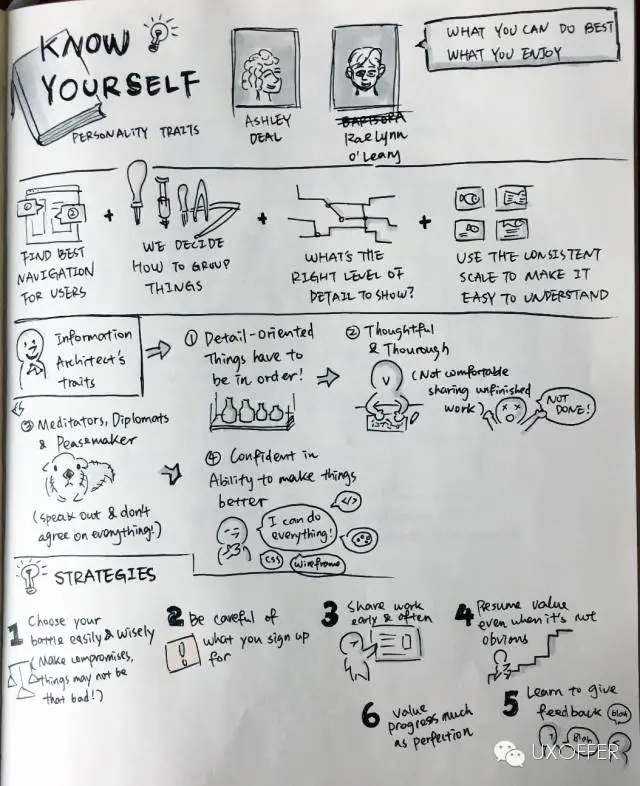 KNOW
YOURSELF
PERSONALITY TRAITS
ASHLEY
DEAL
BARBSORA
Raelynn
O'Leary
WHAT YOU CAN DO BEST
WHAT YOU ENJOY
FIND BEST
NAVIGATION
FOR USERS
+
WE DECIDE
HOW TO GROUP
THINGS
+
WHAT'S THE
RIGHT LEVEL OF
DETAIL TO SHOW?
+
USE THE CONSISTENT
SCALE TO MAKE IT
EASY TO UNDERSTAND
Information
Architect's
traits
① Detail-oriented
Things have to
be in order!
② Thoughtful
& Thourough
(Not comfortable
sharing unfinished
work)
NOT
DONE!
③ Meditators, Diplomats
& Peasemaker
(speak out & don't
agree on everything!)
④ Confident in
Ability to make things
better
</>
I can do
everything!
CSS
wireframe
STRATEGIES
1 Choose your
battle easily & wisely
(Make compromises,
things may not be
that bad!)
2 Be careful of
what you sign up
for
!
3 Share work
early & often
4 Resume value
even when it's not
obvious
5 Learn to give
feedback
blah
Blah
6 Value
progress much
as perfection
UXOFFER